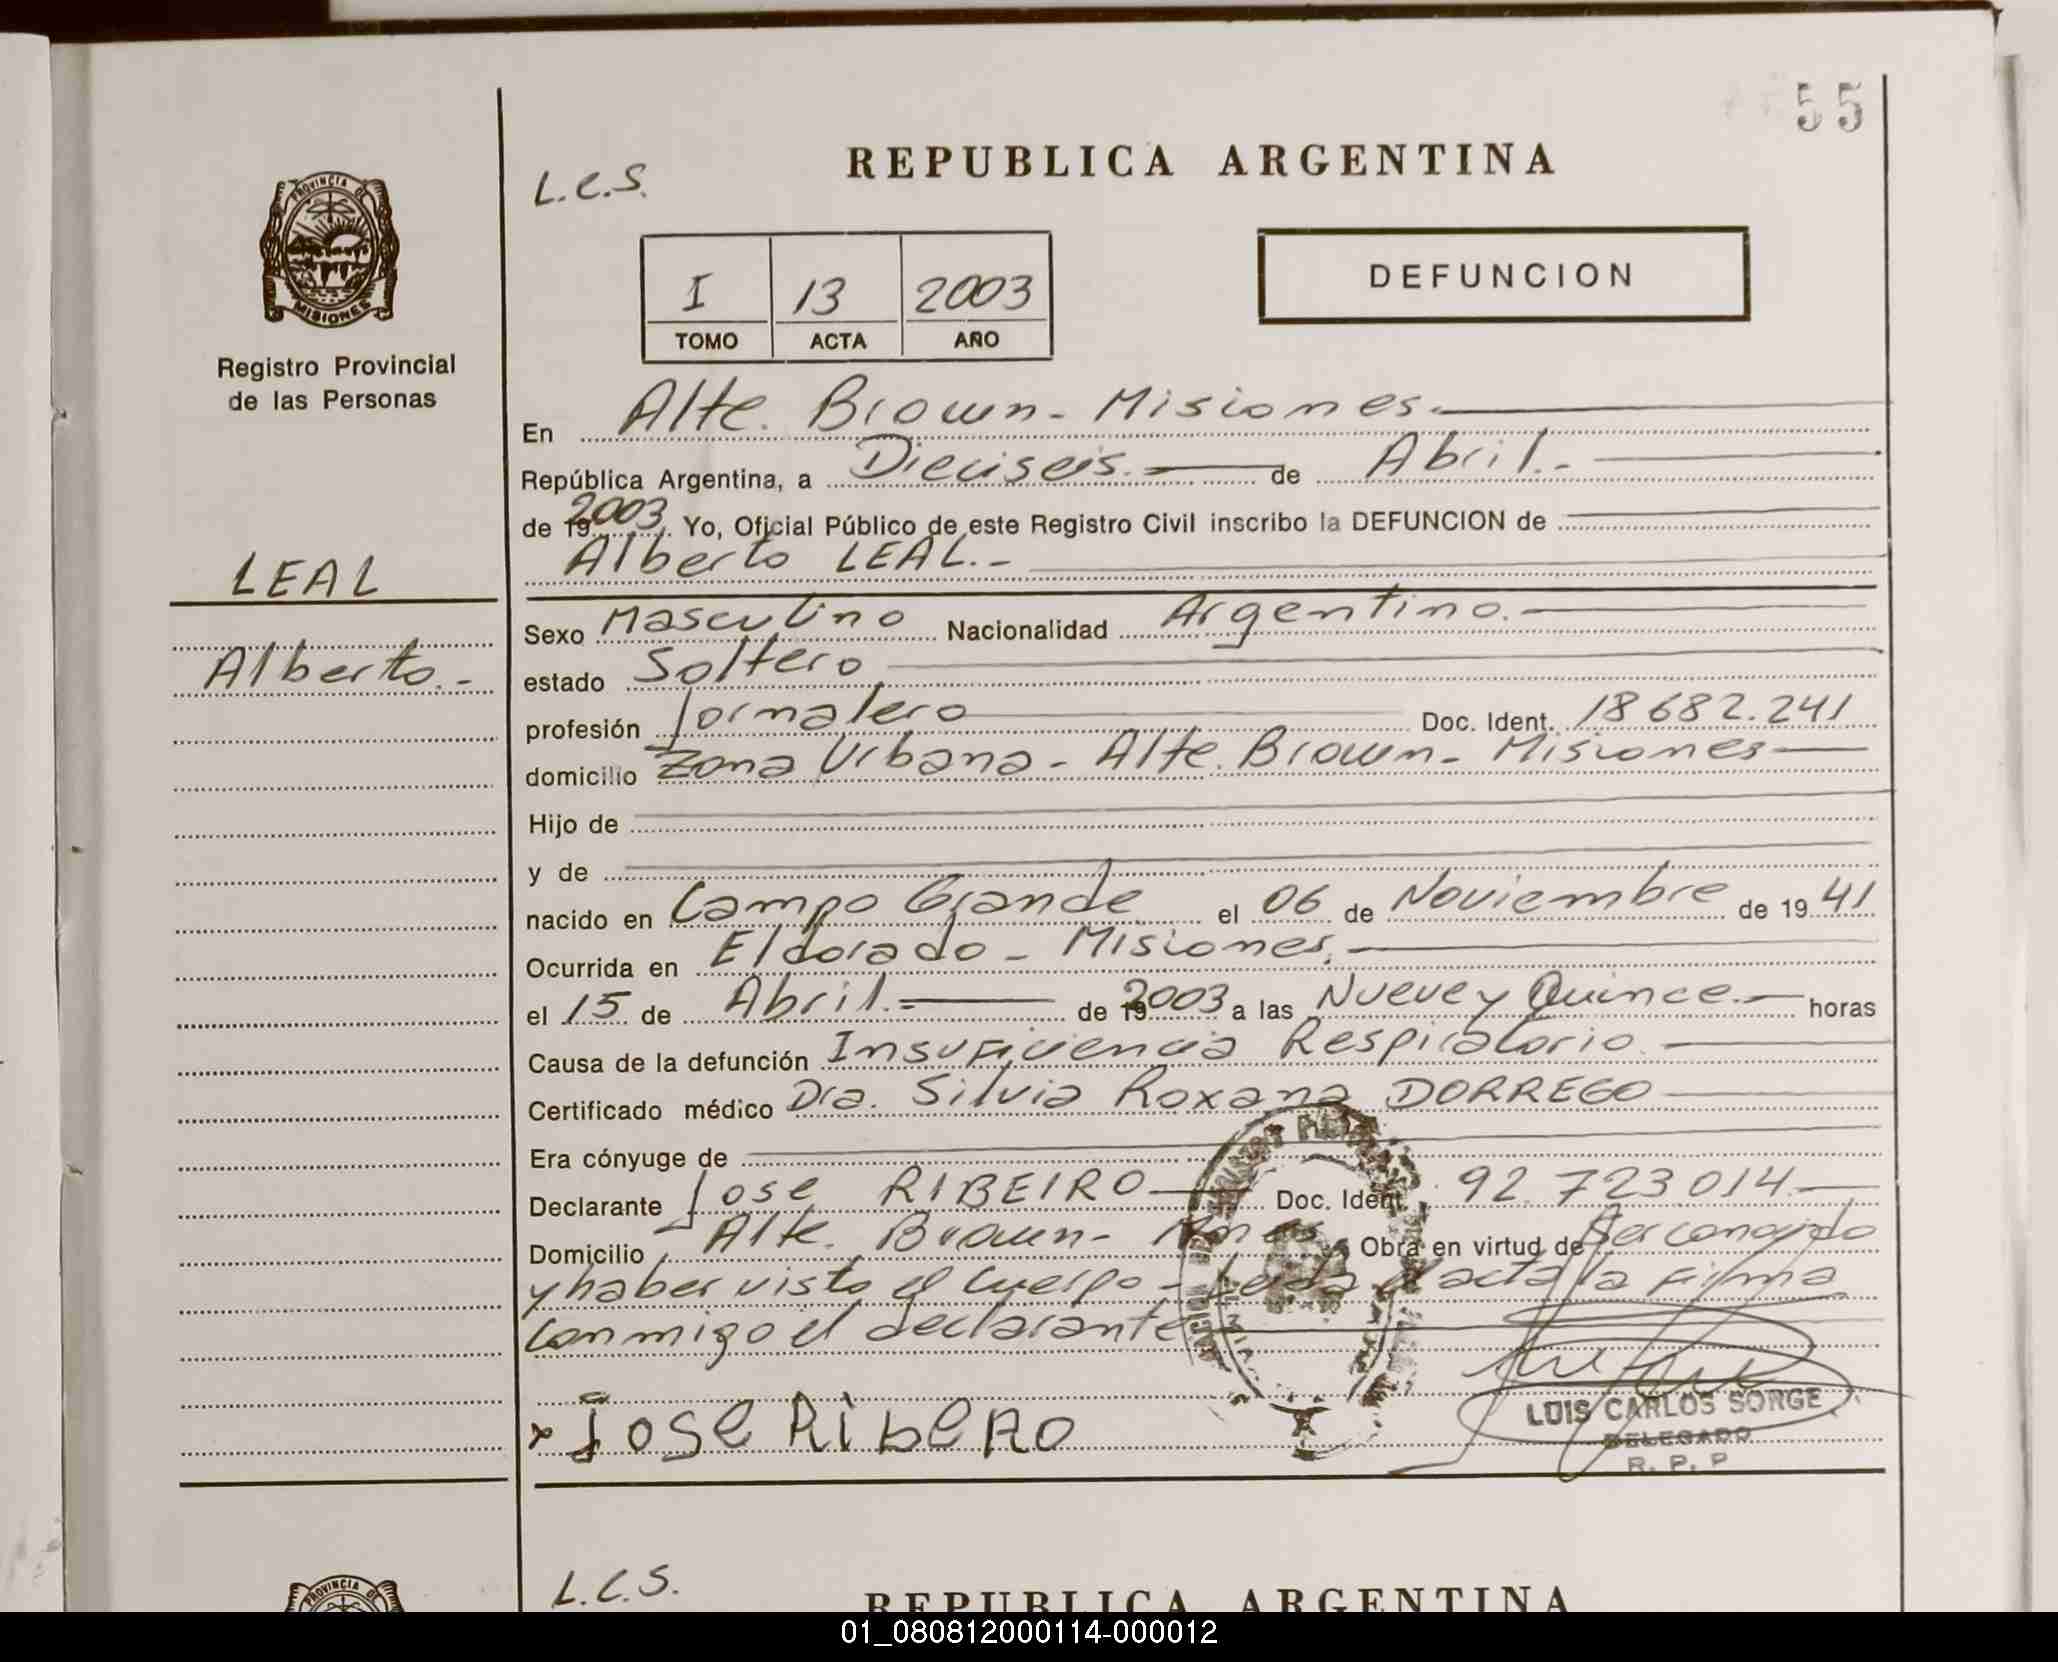 55
REPUBLICA ARGENTINA
L.C.S.
PROVINCIA DE
MISIONES
DEFUNCION
I 13 2003
TOMO ACTA AÑO
Registro Provincial
de las Personas
En Alte. Brown - Misiones.
República Argentina, a Dieciseis. de Abril.-
de 19 2003. Yo, Oficial Público de este Registro Civil inscribo la DEFUNCION de
Alberto LEAL.-
LEAL
Alberto.-
Sexo Masculino Nacionalidad Argentino.
estado Soltero
profesión Jornalero Doc. Ident. 18682.241
domicilio Zona Urbana - Alte. Brown - Misiones
Hijo de
y de
nacido en Campo Grande el 06 de Noviembre de 19 41
Ocurrida en Eldorado - Misiones.
el 15 de Abril. de 19 2003 a las Nueve y Quince. horas
Causa de la defunción Insuficiencia Respiratorio.
Certificado médico Dra. Silvia Roxana DORREGO
Era cónyuge de
Declarante Jose RIBEIRO Doc. Ident. 92.723014.
Domicilio Alte. Brown - Mnes Obra en virtud de Ser conocido
y haber visto el cuerpo - Leida el acta la firma
conmigo el declarante
x jose Ribero
LUIS CARLOS SORGE
DELEGADO
R. P. P
L.C.S.
PROVINCIA DE
REPUBLICA ARGENTINA
01_080812000114-000012